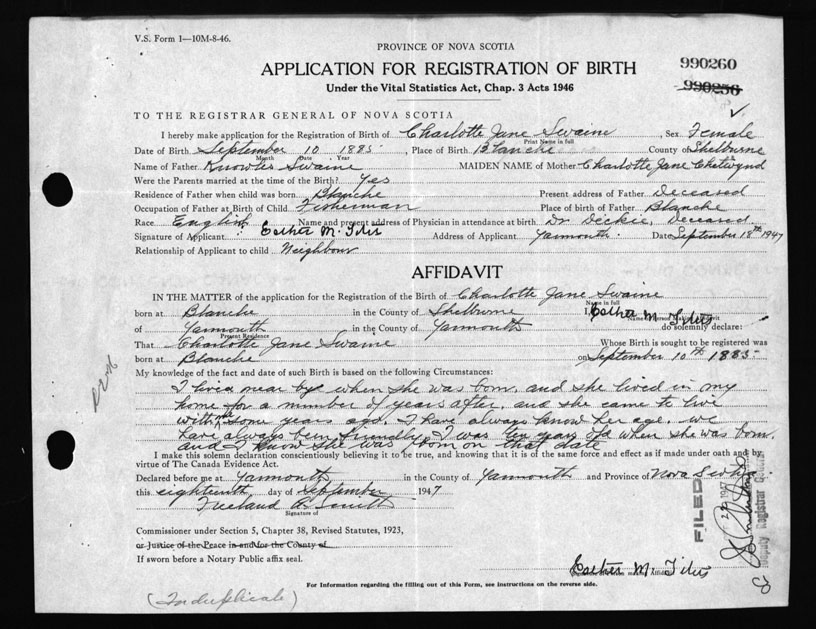 V.S. Form 1—10M-8-46.
PROVINCE OF NOVA SCOTIA
990260
APPLICATION FOR REGISTRATION OF BIRTH
990256
Under the Vital Statistics Act, Chap. 3 Acts 1946
TO THE REGISTRAR GENERAL OF NOVA SCOTIA
I hereby make application for the Registration of Birth of Charlotte Jane Swaine, Sex Female
Print Name in full
Date of Birth September 10 1885, Place of Birth Blanche County of Shelburne
Month Date Year
Name of Father Knowles Swaine MAIDEN NAME of Mother Charlotte Jane Chetwynd
Were the Parents married at the time of the Birth? Yes
Residence of Father when child was born Blanche Present address of Father Deceased
Occupation of Father at Birth of Child Fisherman Place of birth of Father Blanche
Race English Name and present address of Physician in attendance at birth Dr Dickie, deceased
Signature of Applicant Esther M. Address of Applicant Yarmouth. Date September 18th 1947
Relationship of Applicant to child Neighbour
AFFIDAVIT
IN THE MATTER of the application for the Registration of the Birth of Charlotte Jane Swaine
Name in full
born at Blanche in the County of Shelburne I, Esther M.
of Yarmouth in the County of Yarmouth do solemnly declare:
Present Residence
That Charlotte Jane Swaine Whose Birth is sought to be registered was
born at Blanche on September 10th 1885
My knowledge of the fact and date of such Birth is based on the following Circumstances:
I lived near by when she was born, and she lived in my
home for a number of years after, and she came to live
with me some years ago. I have always know her age. we
have always been friendly. I was ten years old when she was born,
and I know she was born on that date
I make this solemn declaration conscientiously believing it to be true, and knowing that it is of the same force and effect as if made under oath and by
virtue of The Canada Evidence Act.
Declared before me at Yarmouth in the County of Yarmouth and Province of Nova Scotia.
this eighteenth day of September 1947
Freeland A. Smith
Signature of
Commissioner under Section 5, Chapter 38, Revised Statutes, 1923,
or Justice of the Peace in and for the County of
If sworn before a Notary Public affix seal.
Esther M.
For Information regarding the filling out of this Form, see instructions on the reverse side.
(In duplicate)
FILED
Deputy Registrar